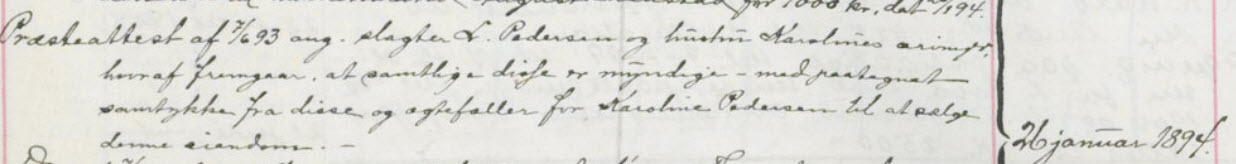 for 1000 kr, dat
Præsteattest af 7/6 93 ang. slagter L. Pedersen og hustru Karolines arvinger,
hvoraf fremgaar, at samtlige disse er myndige – med paategnet
samtykke fra disse og ægtefæller for Karoline Pedersen til at sælge
denne eiendom. –
26 januar 1894.